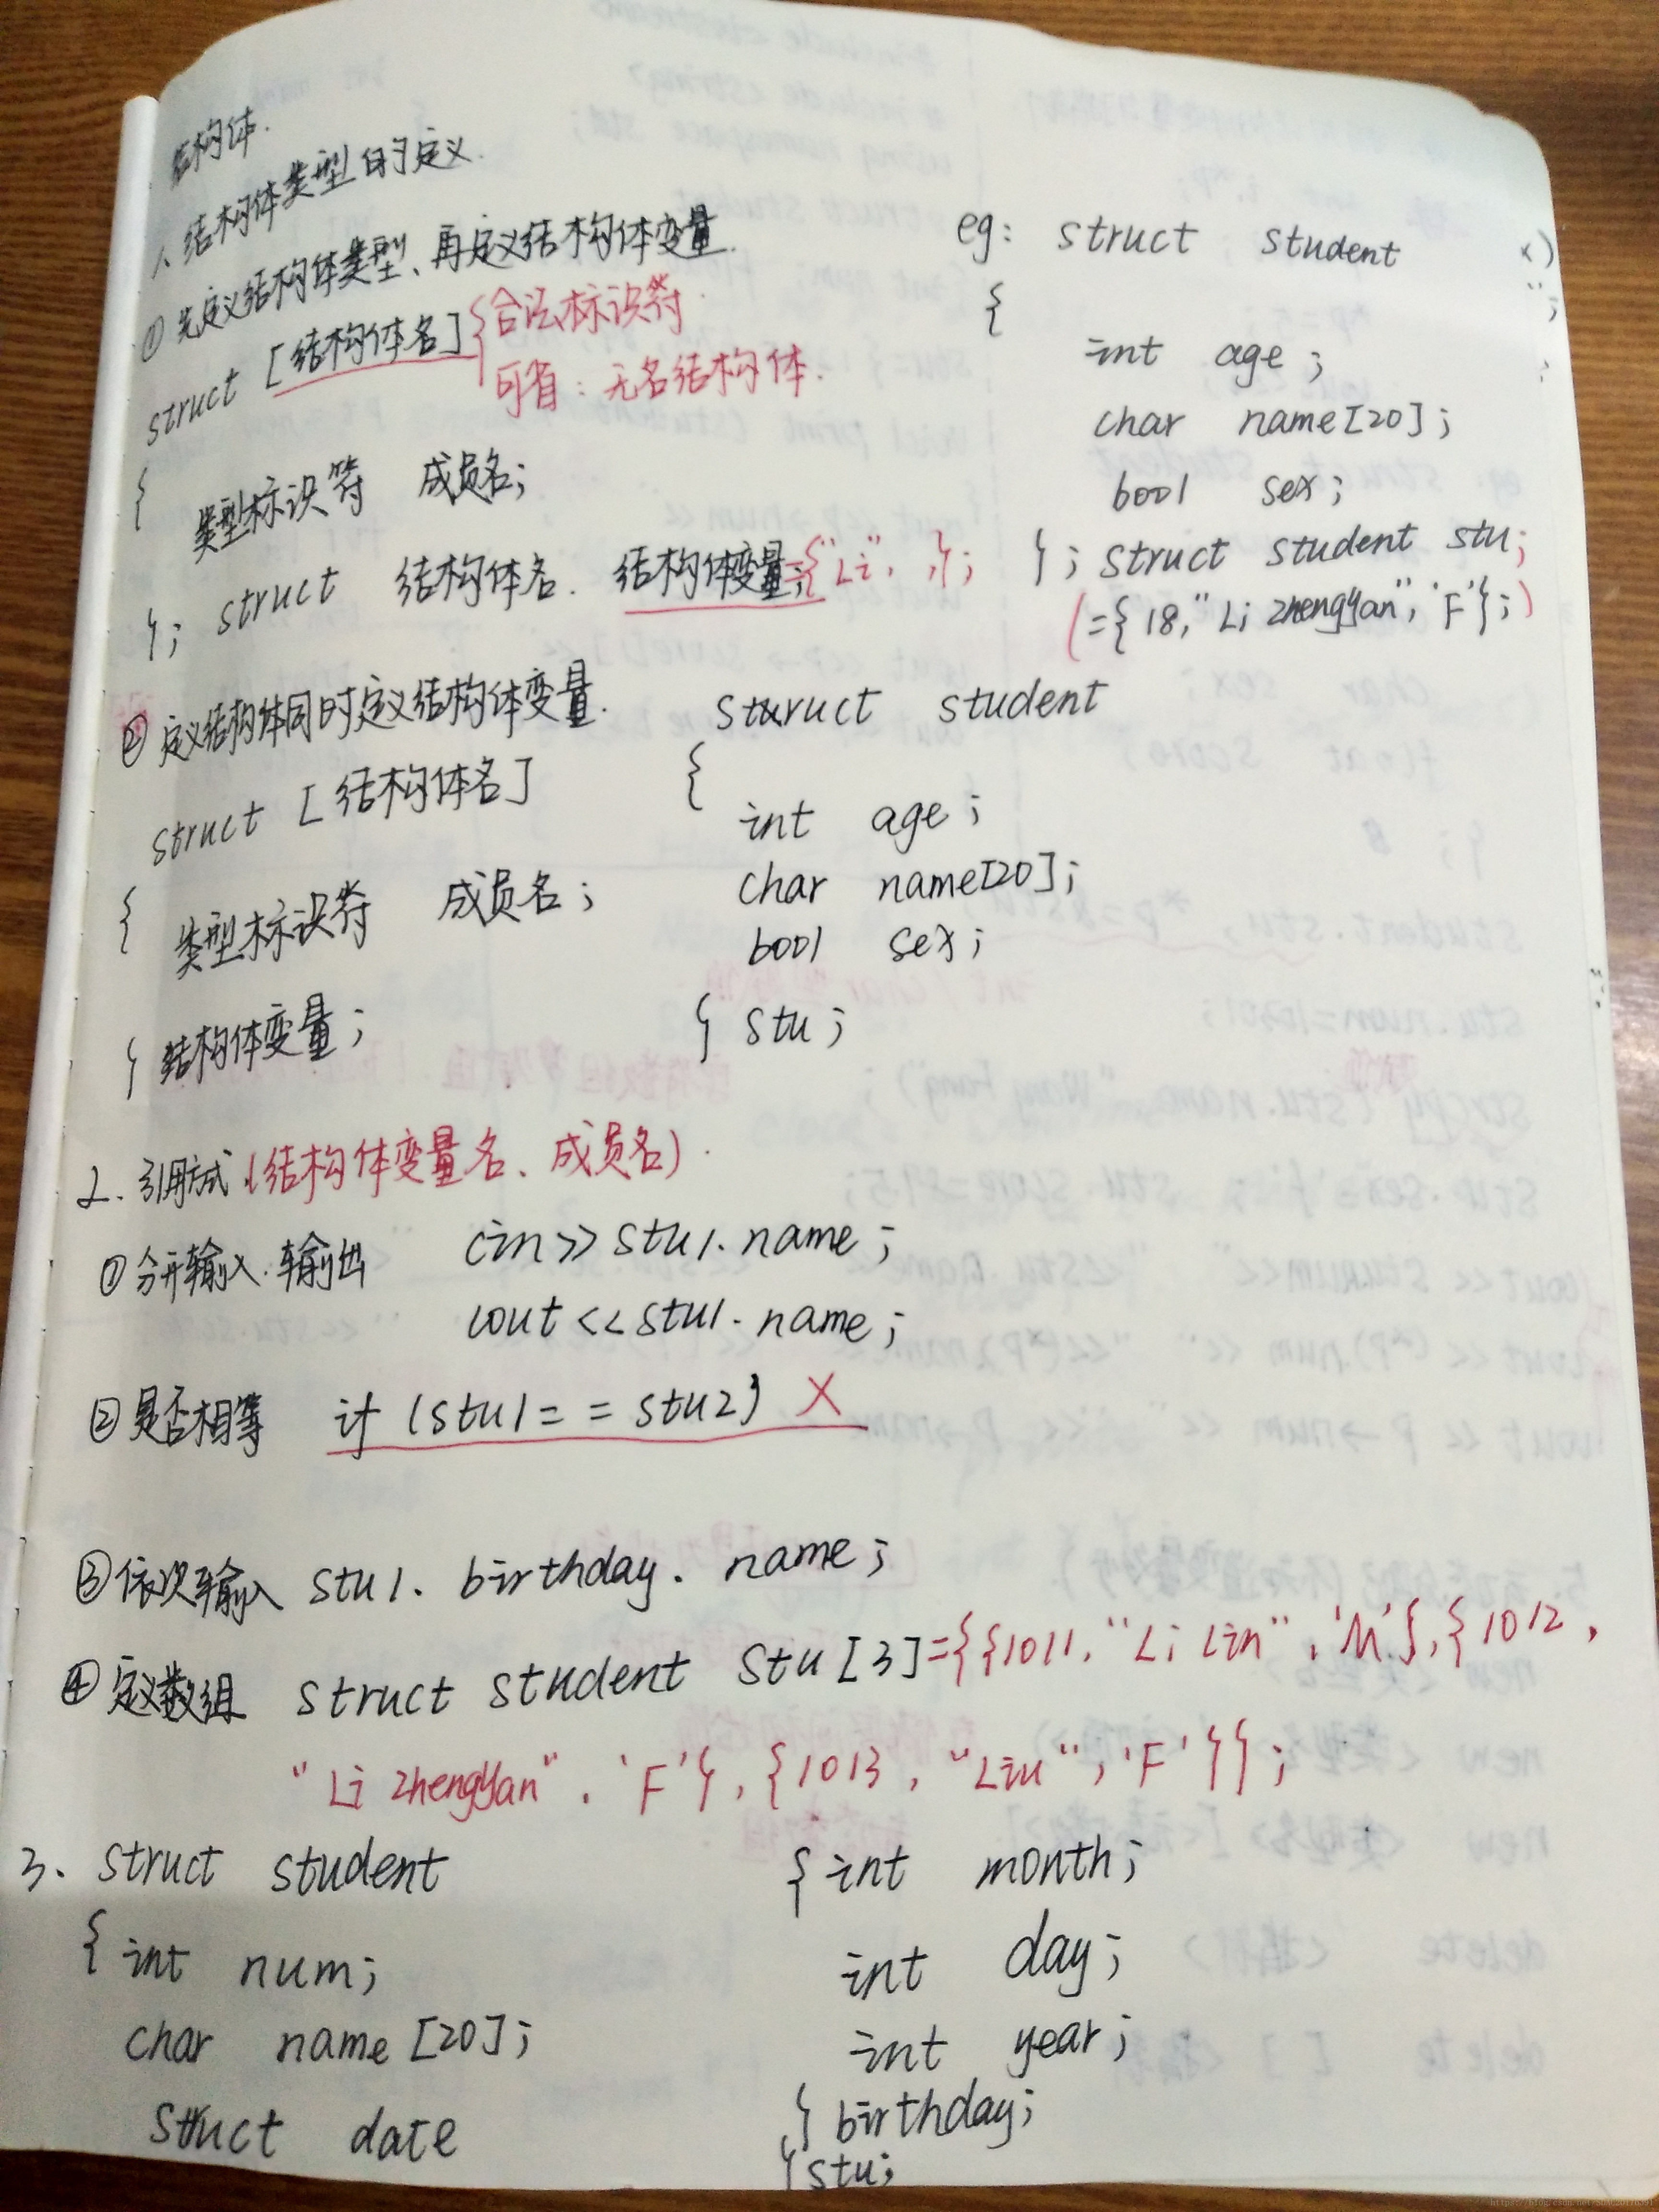 结构体.
1、结构体类型的定义.
①先定义结构体类型、再定义结构体变量.
struct [结构体名] {合法标识符.
可省：无名结构体.
{
类型标识符 成员名;
}; struct 结构体名. 结构体变量={"Li", };
eg: struct student
{
int age;
char name[20];
bool sex;
}; struct student stu;
(={18,"Li ZhengYan",'F'};)
②定义结构体同时定义结构体变量.
struct [结构体名]
{
类型标识符 成员名;
} 结构体变量;
struct student
{
int age;
char name[20];
bool sex;
} stu;
2.引用方式(结构体变量名、成员名).
①分开输入.输出 cin>>stu1.name;
cout<<stu1.name;
②是否相等 if (stu1==stu2) X
③依次输入 stu1.birthday.name;
④定义数组 struct student stu[3]={{1011,"Li Lin",'M'},{1012,
"Li ZhengYan",'F'},{1013,"Liu",'F'}};
3、struct student
{int num;
char name[20];
struct date
{int month;
int day;
int year;
} birthday;
} stu;